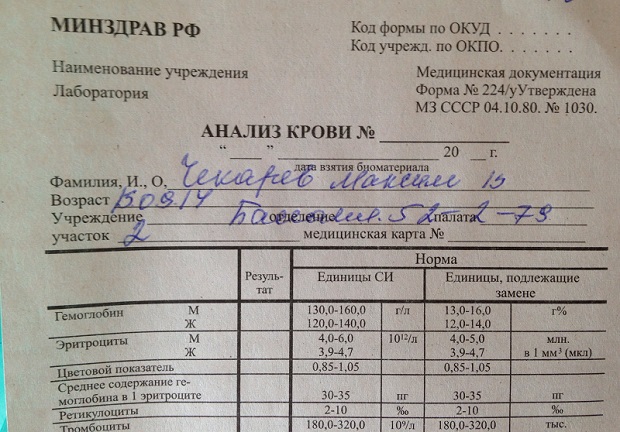 МИНЗДРАВ РФ
Код формы по ОКУД . . . . . . .
Код учрежд. по ОКПО. . . . . .
Наименование учреждения
Лаборатория
Медицинская документация
Форма № 224/уУтверждена
МЗ СССР 04.10.80. № 1030.
АНАЛИЗ КРОВИ №
“ ” 20 г.
дата взятия биоматериала
Фамилия, И., О,
Возраст
Учреждение отделение палата
участок 2 медицинская карта №
Резуль-тат Норма
Единицы СИ Единицы, подлежащие замене
Гемоглобин М 130,0-160,0 г/л 13,0-16,0 г%
Ж 120,0-140,0 12,0-14,0
Эритроциты М 4,0-6,0 10¹²/л 4,0-5,0 млн.
Ж 3,9-4,7 3,9-4,7 в 1 мм³ (мкл)
Цветовой показатель 0,85-1,05 0,85-1,05
Среднее содержание ге-
моглобина в 1 эритроците 30-35 пг 30-35 пг
Ретикулоциты 2-10 ‰ 2-10 ‰
Тромбоциты 180,0-320,0 10⁹/л 180,0-320,0 тыс.